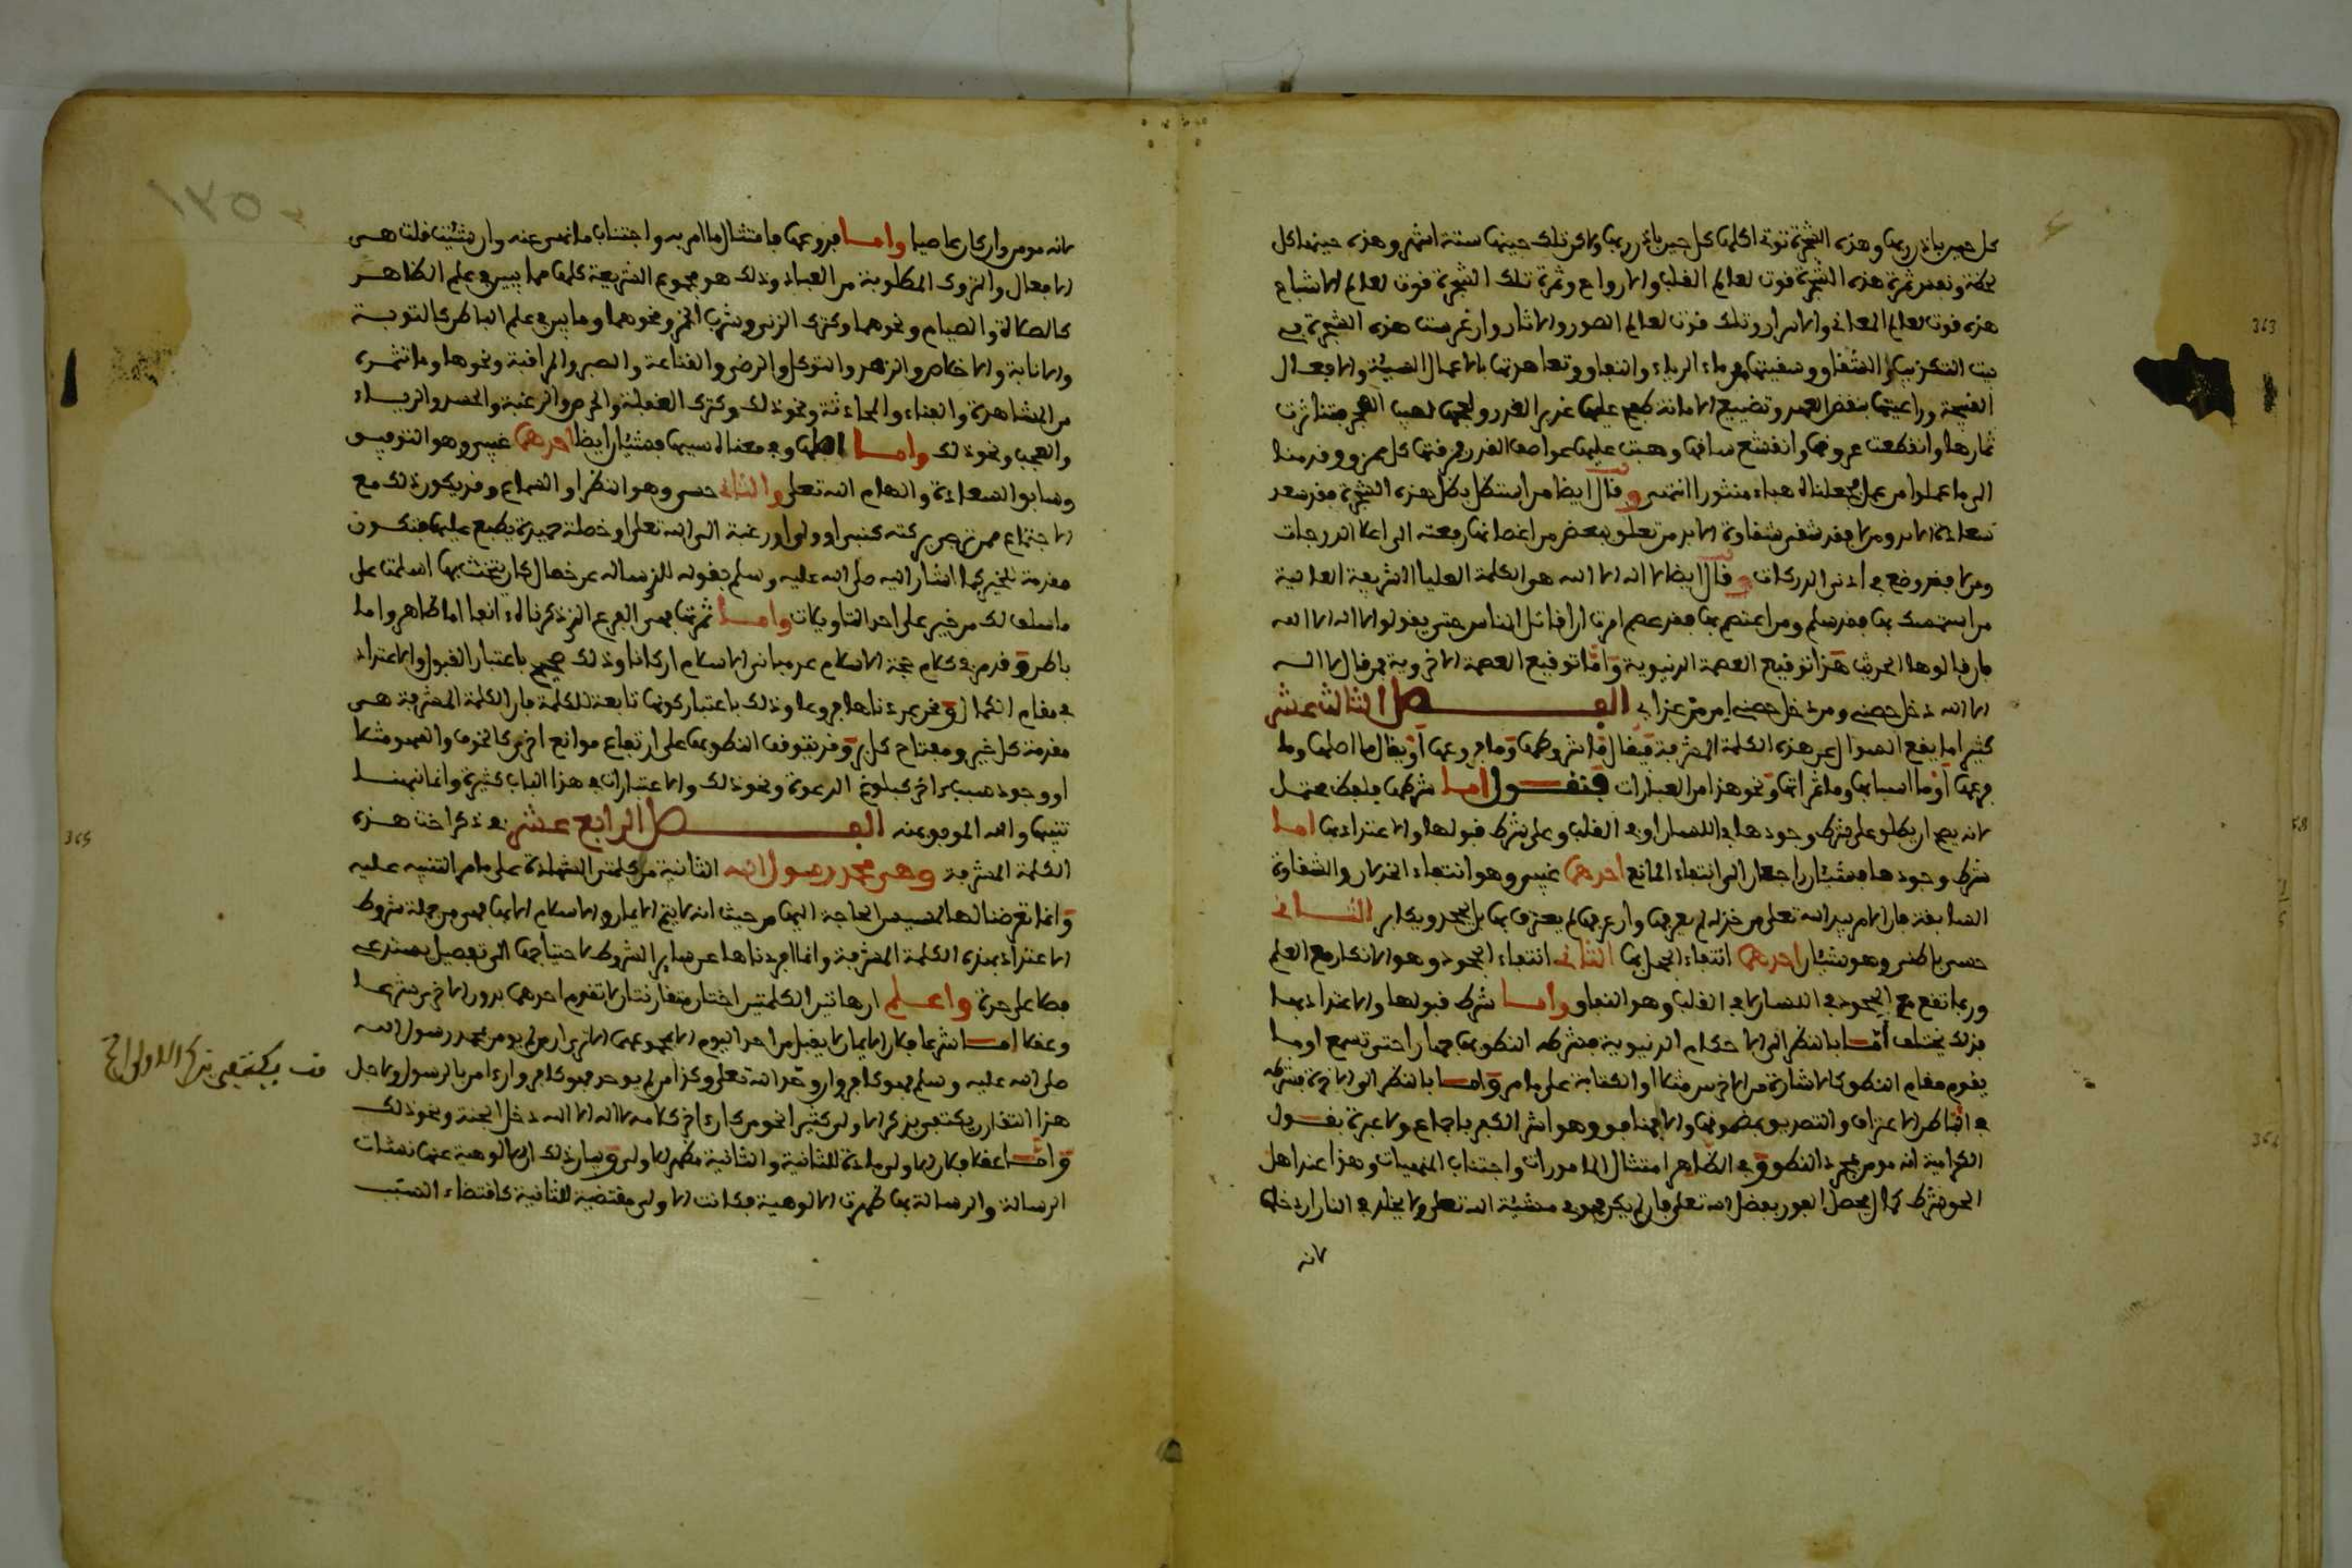 كل حين باذن ربها وهذه الشجرة توتي اكلها كل حين باذن ربها ولاكن تلك حينها ستة اشهر وهذه حينها كل
لحظة ونفس ثمرة هذه الشجرة قوت لعالم القلب والارواح وثمرة تلك الشجرة قوت لعالم الاشباح
هذه قوت لعالم المعاني والاسرار وتلك قوت لعالم الصور والاثار وان غرست هذه الشجرة في
نبت التكذيب والشقاق وسقيتها من ماء الرياء والنفاق وتعاهدتها بالاعمال السيئة والافعال
القبيحة وراعيتها بنقض العهد وتضييع الامانة طفح عليها غدير الغدر ولفحها لهيب الهجر فتناثرت
ثمارها وانقطعت عروقها وانقشع ساقها وهبت عليها عواصف القدر فمزقتها كل ممزق وقدمنا
الى ما عملوا من عمل فجعلناه هباء منثورا انتهى وقال ايضا من استظل بظل هذه الشجرة فقد سعد
سعادة الابد ومن لا فقد شقي شقاوة الابد من تعلق ببعض من اغصانها رفعته الى اعلا الدرجات
ومن لا فقد وضع في ادنى الدركات وقال ايضا لا اله الا الله هو الكلمة العليا الشريفة العالية
من استمسك بها فقد سلم ومن اعتصم بها فقد عصم امرت ان اقاتل الناس حتى يقولوا لا اله الا الله
فان قالوها الحديث هذا توقيع العصمة الدنيوية واما توقيع العصمة الاخروية فمن قال لا اله
الا الله دخل حصني ومن دخل حصني امن من عذابي الفصل الثالث عشر
كثيرا ما يقع السوال عن هذه الكلمة المشرفة فيقال ما شروطها وما فروعها او يقال ما اصلها وما
فرعها او ما اسبابها وما ثمراتها ونحو هذا من العبارات فنقول اما شرطها فلفظ محتمل
لانه يصح ان يطلق على شرط وجودها في اللسان او في القلب وعلى شرط قبولها والاعتداد بها اما
شرط وجودها فشيئان راجعان الى انتفاء المانع احدهما غيبي وهو انتفاء الخذلان والشقاوة
السابقة فان الامر بيد الله تعلى من خذله لم يعرفها وان عرفها لم يعترف بها بل يجحد ويكابر الثاني
حسي باطني وهو شيئان احدهما انتفاء الجهل بها الثاني انتفاء الجحود وهو الانكار مع العلم
وربما تقع مع الجحود في اللسان لا في القلب وهو النفاق واما شرط قبولها والاعتداد بها
فذلك يختلف اما بالنظر الى الاحكام الدنيوية فشرطه النطق بها جهارا حتى تسمع او ما
يقوم مقام النطق كالاشارة من الاخرس مثلا او الكتابة على ما مر واما بالنظر الى الاخرة فشرطه
في الباطن الاعتراف والتصديق بمضمونها والا فمنافق وهو اشر الكفر باجماع ولا عبرة بقول
الكرامية انه مومن بمجرد النطق وفي الظاهر امتثال المامورات واجتناب المنهيات وهذا عند اهل
الحق شرط كمال يحصل الفوز بفضل الله تعلى فان لم يكن فهو في مشيئة الله تعلى ولا يخلد في النار ان دخلها
لانه
لانه مومن وان كان عاصيا واما فروعها فامتثال ما امر به واجتناب ما نهي عنه وان شئت قلت هي
الافعال والتروك المطلوبة من العباد وذلك هو مجموع الشريعة كلها مما يبين في علم الظاهر
كالصلاة والصيام ونحوهما وكترك الزنى وشرب الخمر ونحوهما وما يبين في علم الباطن كالتوبة
والانابة والاخلاص والزهد والتوكل والرضى والقناعة والصبر والمراقبة ونحوها وما تثمره
من المشاهدة والفناء والمحادثة ونحو ذلك وكترك الغفلة والحرص والرغبة والحسد والرياء
والعجب ونحو ذلك واما اصلها وفي معناه السبب فشيئان ايضا احدهما غيبي وهو التوفيق
وسابق السعادة والهام الله تعلى والثاني حسي وهو النظر او السماع وقد يكون ذلك مع
الاجتماع بمن ترجى بركته كنبي او ولي او رغبة الى الله تعلى او خصلة حميدة يطبع عليها فتكون
مقدمة للخير كما اشار اليه صلى الله عليه وسلم بقوله للذي ساله عن خصال كان يتحنث بها اسلمت على
ما سلف لك من خير على احد التاويلات واما ثمرتها فهي الفرع الذي ذكرناه انفا اما ظاهر واما
باطن وقد مر في كلام حجة الاسلام عد مباني الاسلام اركانا وذلك صحيح باعتبار القبول والاعتداد
في مقام الكمال ونحن عددناها فروعا وذلك باعتبار كونها تابعة للكلمة فان الكلمة المشرفة هي
مقدمة كل خير ومفتاح كل بر وقد يتوقف النطق بها على ارتفاع موانع اخرى كالخوف والسهو مثلا
او وجود سبب اخر كبلوغ الدعوة ونحو ذلك والاعتبارات في هذا الباب كثيرة وانما نبهنا
تنبيها والله الموفق بمنه الفصل الرابع عشر في ذكر اخت هذه
الكلمة المشرفة وهي محمد رسول الله الثانية من كلمتي الشهادة على ما مر التنبيه عليه
وانما تعرضنا لها لمسيس الحاجة اليها من حيث انه لا يتم الايمان والاسلام الا بها فهي من جملة شروط
الاعتداد بهذه الكلمة المشرفة وانما افردناها عن ساير الشروط لاحتياجها الى تفصيل يستدعي
فصلا على حدة واعلم ان هاتين الكلمتين اختان متقارنتان لا تقوم احدهما بدون الاخرى شرعا
وعقلا اما شرعا فلان الايمان لا يقبل من احد اليوم الا بمجموعهما الا ترى ان من لم يومن بمحمد رسول الله
صلى الله عليه وسلم فهو كافر وان وحد الله تعلى وكذا من لم يوحد فهو كافر وان امن بالرسول ولاجل
هذا التقارن يكتفى بذكر الاولى كثيرا نحو من كان اخر كلامه لا اله الا الله دخل الجنة ونحو ذلك
واما عقلا فلان الاولى مادة للثانية والثانية مظهر للاولى وبيان ذلك ان الالوهية عنها نشات
الرسالة والرسالة بها ظهرت الالوهية فكانت الاولى مقتضية للثانية كاقتضاء السبب
قف يكتفى بذكر الاولى الخ
363
365
364
58